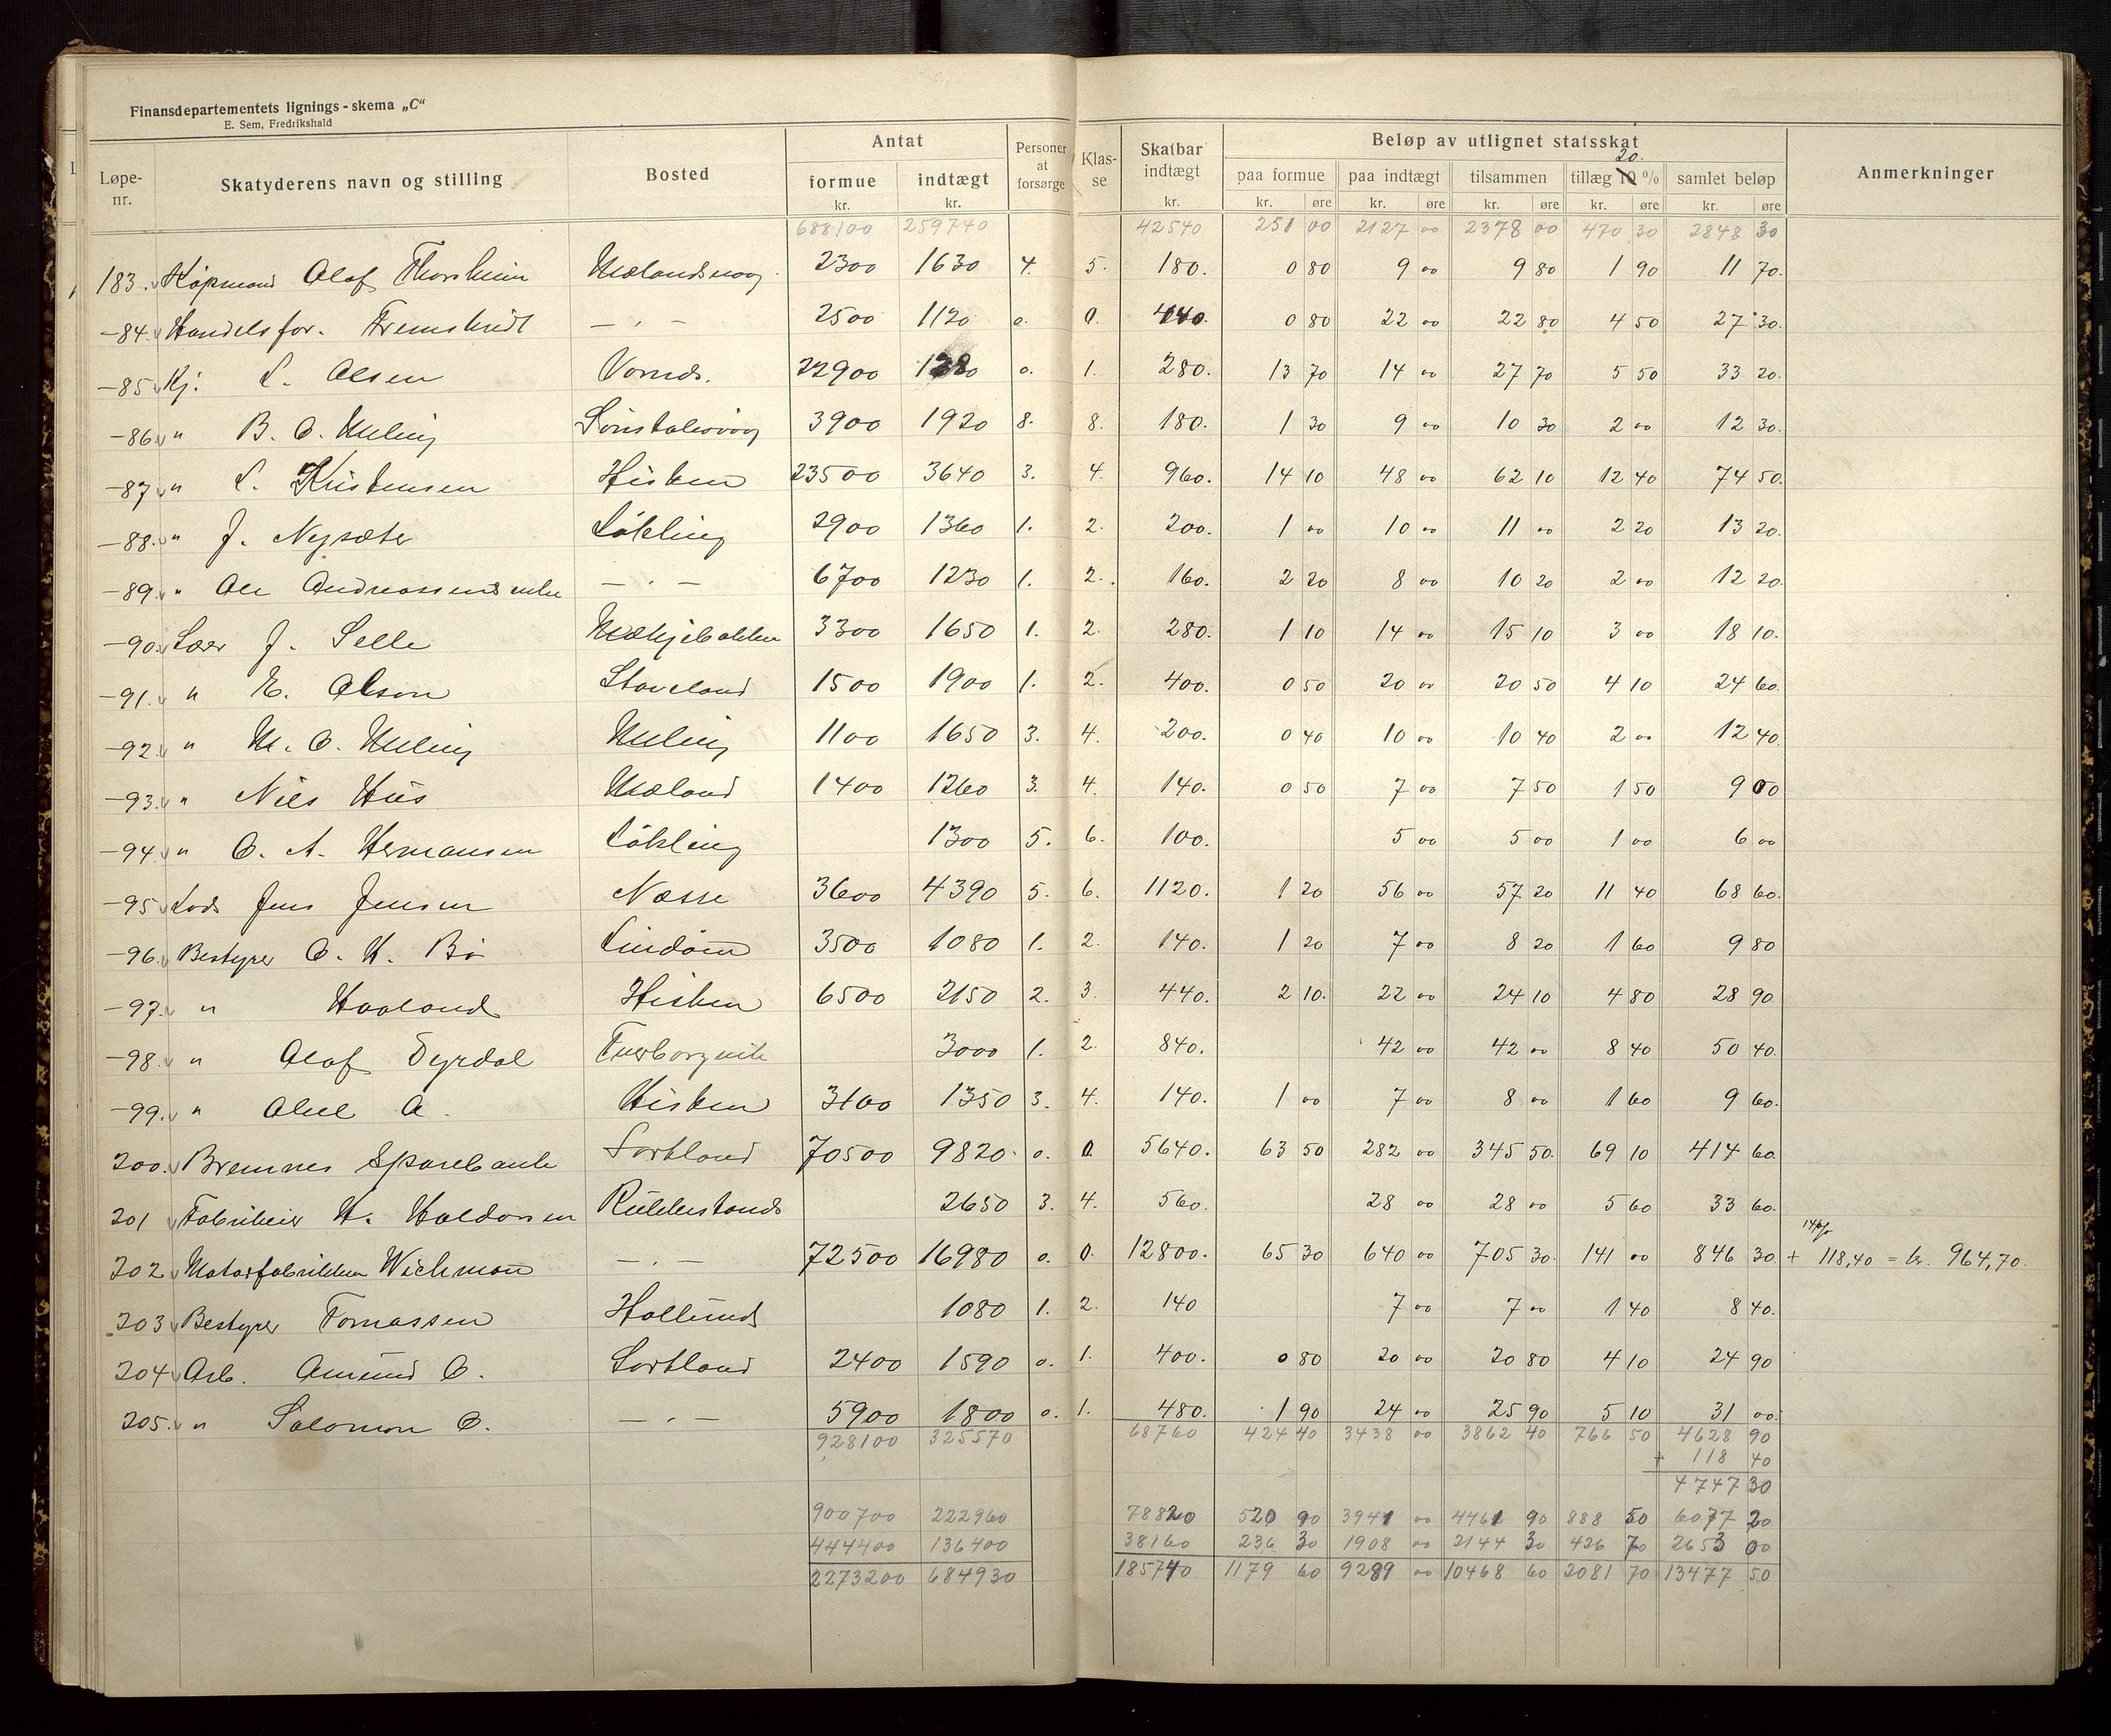 Finansdepartementets lignings-skema „C"
E. Sem, Fredrikshald
Løpe-nr. Skatyderens navn og stilling Bosted Antat formue kr. indtægt kr. Personer at forsørge Klas-se Skatbar indtægt kr. Beløp av utlignet statsskat paa formue kr. øre paa indtægt kr. øre tilsammen kr. øre tillæg 10 20. % kr. øre samlet beløp kr. øre Anmerkninger
688100 259740 42540 251 00 2127 00 2378 00 470 30 2848 30
183. Kjøpmand Olaf Thorsheim Mælandsvaag 2300 1630 4. 5. 180. 0 80 9 00 9 80 1 90 11 70.
-84. Handelsfor. — . — 2500 1120 0. 0. 440. 0 80 22 00 22 80 4 50 27 30.
-85 Kj. L. Olsen Vornds. 22900 0. 1. 280. 13 70 14 00 27 70 5 50 33 20.
-86. " B. O. Meling 3900 1920 8. 8. 180. 1 30 9 00 10 30 2 00 12 30.
-87 " L. Kristensen Hisken 23500 3640 3. 4. 960. 14 10 48 00 62 10 12 40 74 50.
-88. " J. Nysæter Løkling 2900 1360 1. 2. 200. 1 00 10 00 11 00 2 20 13 20.
-89. " Ole Andreassens enke — . — 6700 1230 1. 2. 160. 2 20 8 00 10 20 2 00 12 20.
-90. Lærer J. Selle Mækjebakken 3300 1650 1. 2. 280. 1 10 14 00 15 10 3 00 18 10.
-91. " E. Olson Staveland 1500 1900 1. 2. 400. 0 50 20 00 20 50 4 10 24 60.
-92. " M. O. Meling Meling 1100 1650 3. 4. 200. 0 40 10 00 10 40 2 00 12 40.
-93. " Nils Hus Mæland 1400 1260 3. 4. 140. 0 50 7 00 7 50 1 50 9 00
-94 " O. A. Hermansen Løkling 1300 5. 6. 100. 5 00 5 00 1 00 6 00
-95 Lods Jens Jensen Næsse 3600 4390 5. 6. 1120. 1 20 56 00 57 20 11 40 68 60.
-96. Bestyrer O. H. Bø Lindøen 3500 1080 1. 2. 140. 1 20 7 00 8 20 1 60 9 80
-97. " Haaland Hisken 6500 2150 2. 3. 440. 2 10. 22 00 24 10 4 80 28 90
-98. " Olaf Dyrdal 3000 1. 2. 840. 42 00 42 00 8 40 50 40.
-99. " O. Hisken 3100 1350 3. 4. 140. 1 00 7 00 8 00 1 60 9 60.
200. Bremnes Sparebank Sortland 70500 9820. 0. 0. 5640. 63 50 282 00 345 50. 69 10 414 60.
201 Fabrikeier H. Haldorsen Rubbestands 2650 3. 4. 560. 28 00 28 00 5 60 33 60.
202 Motorfabrikken Wichmann — . — 72500 16980 0. 0. 12800. 65 30 640 00 705 30. 141 00 846 30. + 118,40 = kr. 964,70.
203 Bestyrer Tomassen Hollunds 1080 1. 2. 140 7 00 7 00 1 40 8 40.
204 Arb. Amund O. Sortland 2400 1590 0. 1. 400. 0 80 20 00 20 80 4 10 24 90
205. " Salomon O. — . — 5900 1800 0. 1. 480. 1 90 24 00 25 90 5 10 31 00.
928100 325570 68760 424 40 3438 00 3862 40 766 50 4628 90
+ 118 40
4747 30
900700 222960 78820 520 90 3941 00 4461 90 888 50 6077 20
444400 136400 38160 236 30 1908 00 2144 30 426 70 2653 00
2273200 684930 185740 1179 60 9289 00 10468 60 2081 70 13477 50